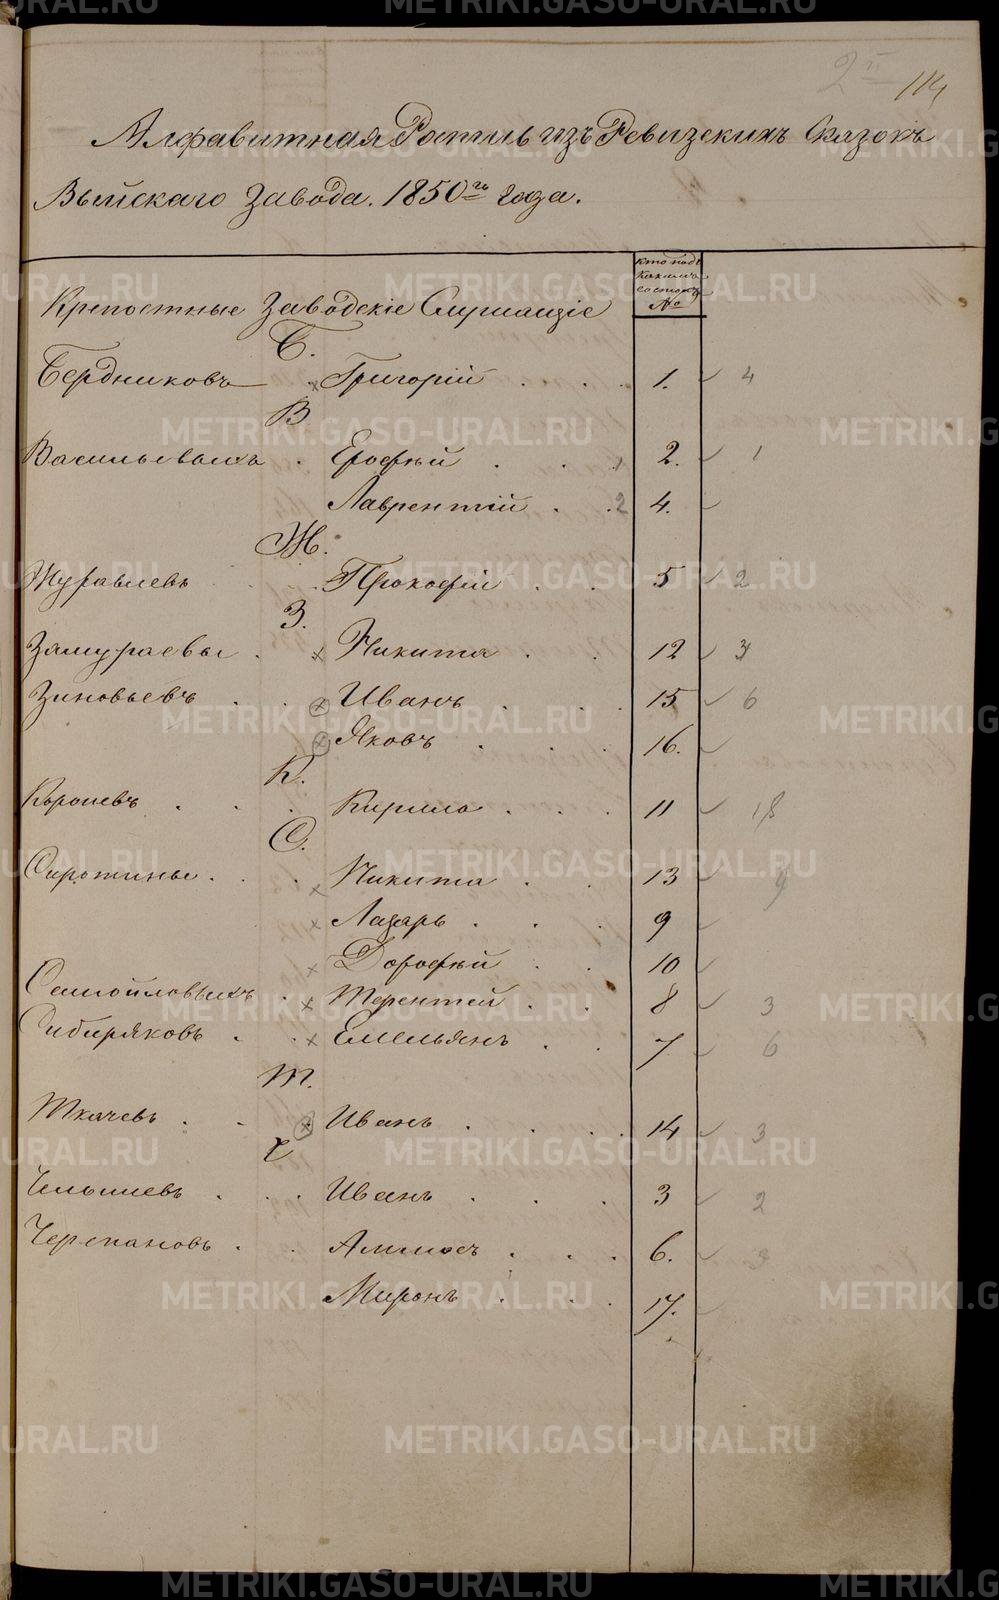 2й 114
Алфавитная Роспись изъ Ревизскихъ Сказокъ
Выйскаго Завода. 1850го года.
Кто подъ
какимъ
состоитъ
№
Крепостные Заводскіе Служащіе
Б.
Бердниковъ . Григорій . . . 1. 4
В
Васильевыхъ . Ерофѣй . . . 2. 1
Лаврентій . . 2 4.
Ж.
Журавлевъ . Прокофій . . 5 2
З.
Замураевы . Никита . . 12 3
Зиновьевъ . . Иванъ . . . 15 6
Яковъ . . . 16.
К.
Королевъ . . . Кирило . . . 11 18
С.
Сиротины . . . Никита . . 13 9
Лазарь . . . 9
Дорофѣй . . 10
Самойловыхъ . Терентей . . 8 3
Сибиряковъ . . Емельянъ . . 7 6
Т.
Ткачевъ . . Иванъ . . . . 14 3
Ч
Челышевъ . . . Иванъ . . . 3 2
Черепановъ . . Аммосъ . . . 6. 9
Миронъ . . . 17.
METRIKI.GASO-URAL.RU